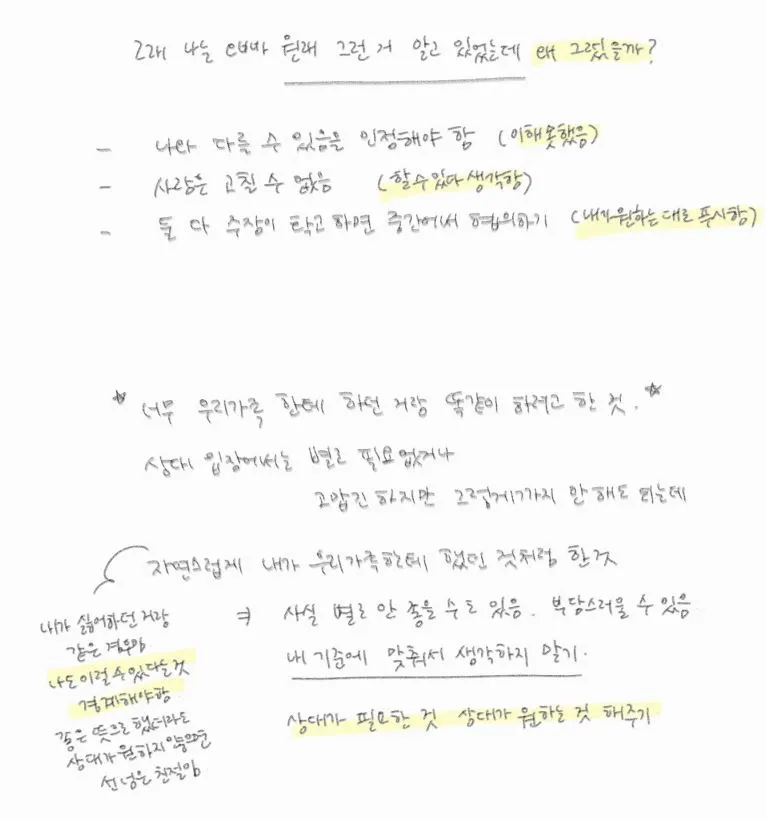 그래 나는 오빠가 원래 그런 거 알고 있었는데 왜 그랬을까?
- 나와 다를 수 있음을 인정해야 함 (이해못했음)
- 사람은 고칠 수 없음 (할 수 있다 생각함)
- 둘 다 주장이 타고 하면 중간에서 협의하기 (내가 원하는 대로 푸시함)
* 너무 우리가족 한테 하던 거랑 똑같이 하려고 한 것. *
상대 입장에서는 별로 필요없거나
고맙긴 하지만 그렇게까지 안 해도 되는데
자연스럽게 내가 우리가족한테 했던 것처럼 한것
사실 별로 안 좋을 수도 있음. 부담스러울 수 있음
내 기준에 맞춰서 생각하지 말기.
상대가 필요한 것 상대가 원하는 것 해주기
내가 싫어하던 거랑
같은 경우임
나도 이럴 수 있다는 것
경계해야함
좋은 뜻으로 했더라도
상대가 원하지 않으면
선 넘은 친절임